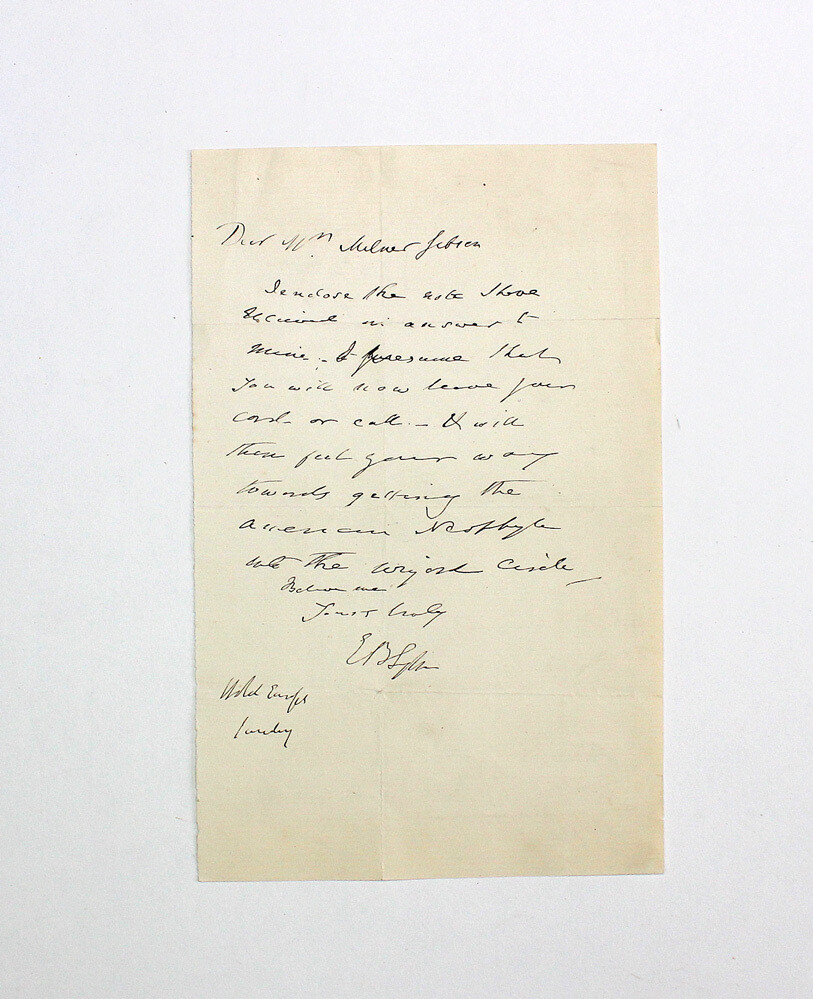 Dear Mrs. Milner Gibson
I enclose the note I have
received in answer to
mine. - I presume that
you will now leave your
card or call. - & will
then feel your way
towards getting the
American Neophyte
into the Circle
Believe me
Yours truly
EBLytton
Hotel Europe
Sunday